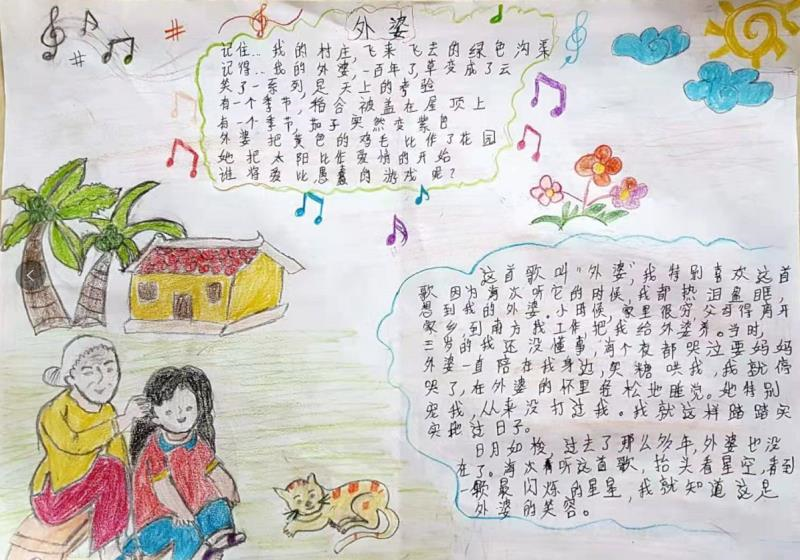 外婆
记住..我的村庄,飞来飞去的绿色沟渠
记得..我的外婆,一百年了,草变成了云
笑了一系列,是天上的考验
有一个季节,稻谷被盖在屋顶上
有一个季节,茄子突然变紫色
外婆把黄色的鸡毛比作了花园
她把太阳比作爱情的开始
谁将爱比愚蠢的游戏呢?
这首歌叫"外婆",我特别喜欢这首
歌因为每次听它的时候,我都热泪盈眶,
想到我的外婆。小时候,家里很穷,父母得离开
家乡,到南方找工作,把我给外婆养。当时,
三岁的我还没懂事,每个夜都哭泣要妈妈
外婆一直陪在我身边,买糖哄我,我就停
哭了,在外婆的怀里轻松地睡觉。她特别
宠我,从来没打过我。我就这样踏踏实
实地过日子。
日月如梭,过去了那么多年,外婆也没
在了。每次听这首歌,抬头看星空,看到
颗最闪烁的星星,我就知道这是
外婆的笑容。